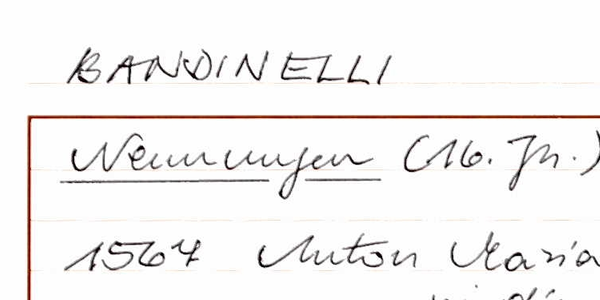 BANDINELLI
Nennungen (16. Jh.)
1567 Anton Maria